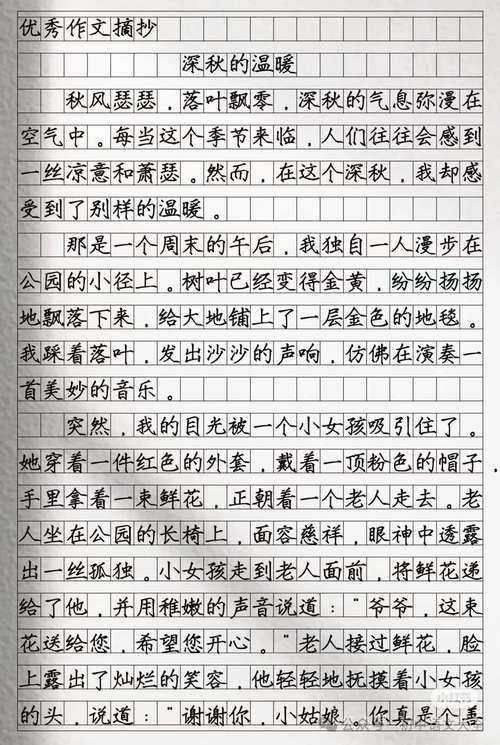 优秀作文摘抄
深秋的温暖
秋风瑟瑟，落叶飘零，深秋的气息弥漫在
空气中。每当这个季节来临，人们往往会感到
一丝凉意和萧瑟。然而，在这个深秋，我却感
受到了别样的温暖。
那是一个周末的午后，我独自一人漫步在
公园的小径上。树叶已经变得金黄，纷纷扬扬
地飘落下来，给大地铺上了一层金色的地毯。
我踩着落叶，发出沙沙的声响，仿佛在演奏一
首美妙的音乐。
突然，我的目光被一个小女孩吸引住了。
她穿着一件红色的外套，戴着一顶粉色的帽子，
手里拿着一束鲜花，正朝着一个老人走去。老
人坐在公园的长椅上，面容慈祥，眼神中透露
出一丝孤独。小女孩走到老人面前，将鲜花递
给了他，并用稚嫩的声音说道："爷爷，这束
花送给您，希望您开心。"老人接过鲜花，脸
上露出了灿烂的笑容，他轻轻地抚摸着小女孩
的头，说道："谢谢你，小姑娘。你真是个善
小红书
公众号